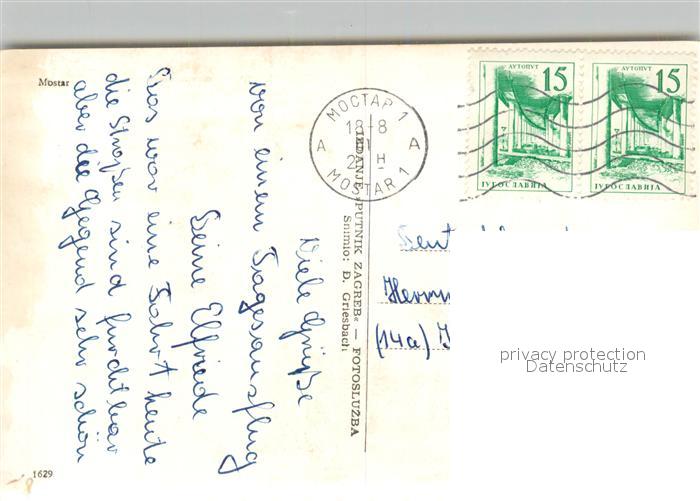 Mostar
Viele Grüße
von einem Tagesausflug
Deine Elfriede
Das war eine Fahrt heute
die Straßen sind furchtbar
aber die Gegend sehr schön
1629
IZDANJE »PUTNIK ZAGREB« — FOTOSLUŽBA
Snimio: Đ. Griesbach
МОСТАР 1
18-8
A A
H
MOSTAR 1
АУТОПУТ 15
ЈУГОСЛАВИЈА
АУТОПУТ 15
ЈУГОСЛАВИЈА
Herrn
(14a)
privacy protection
Datenschutz